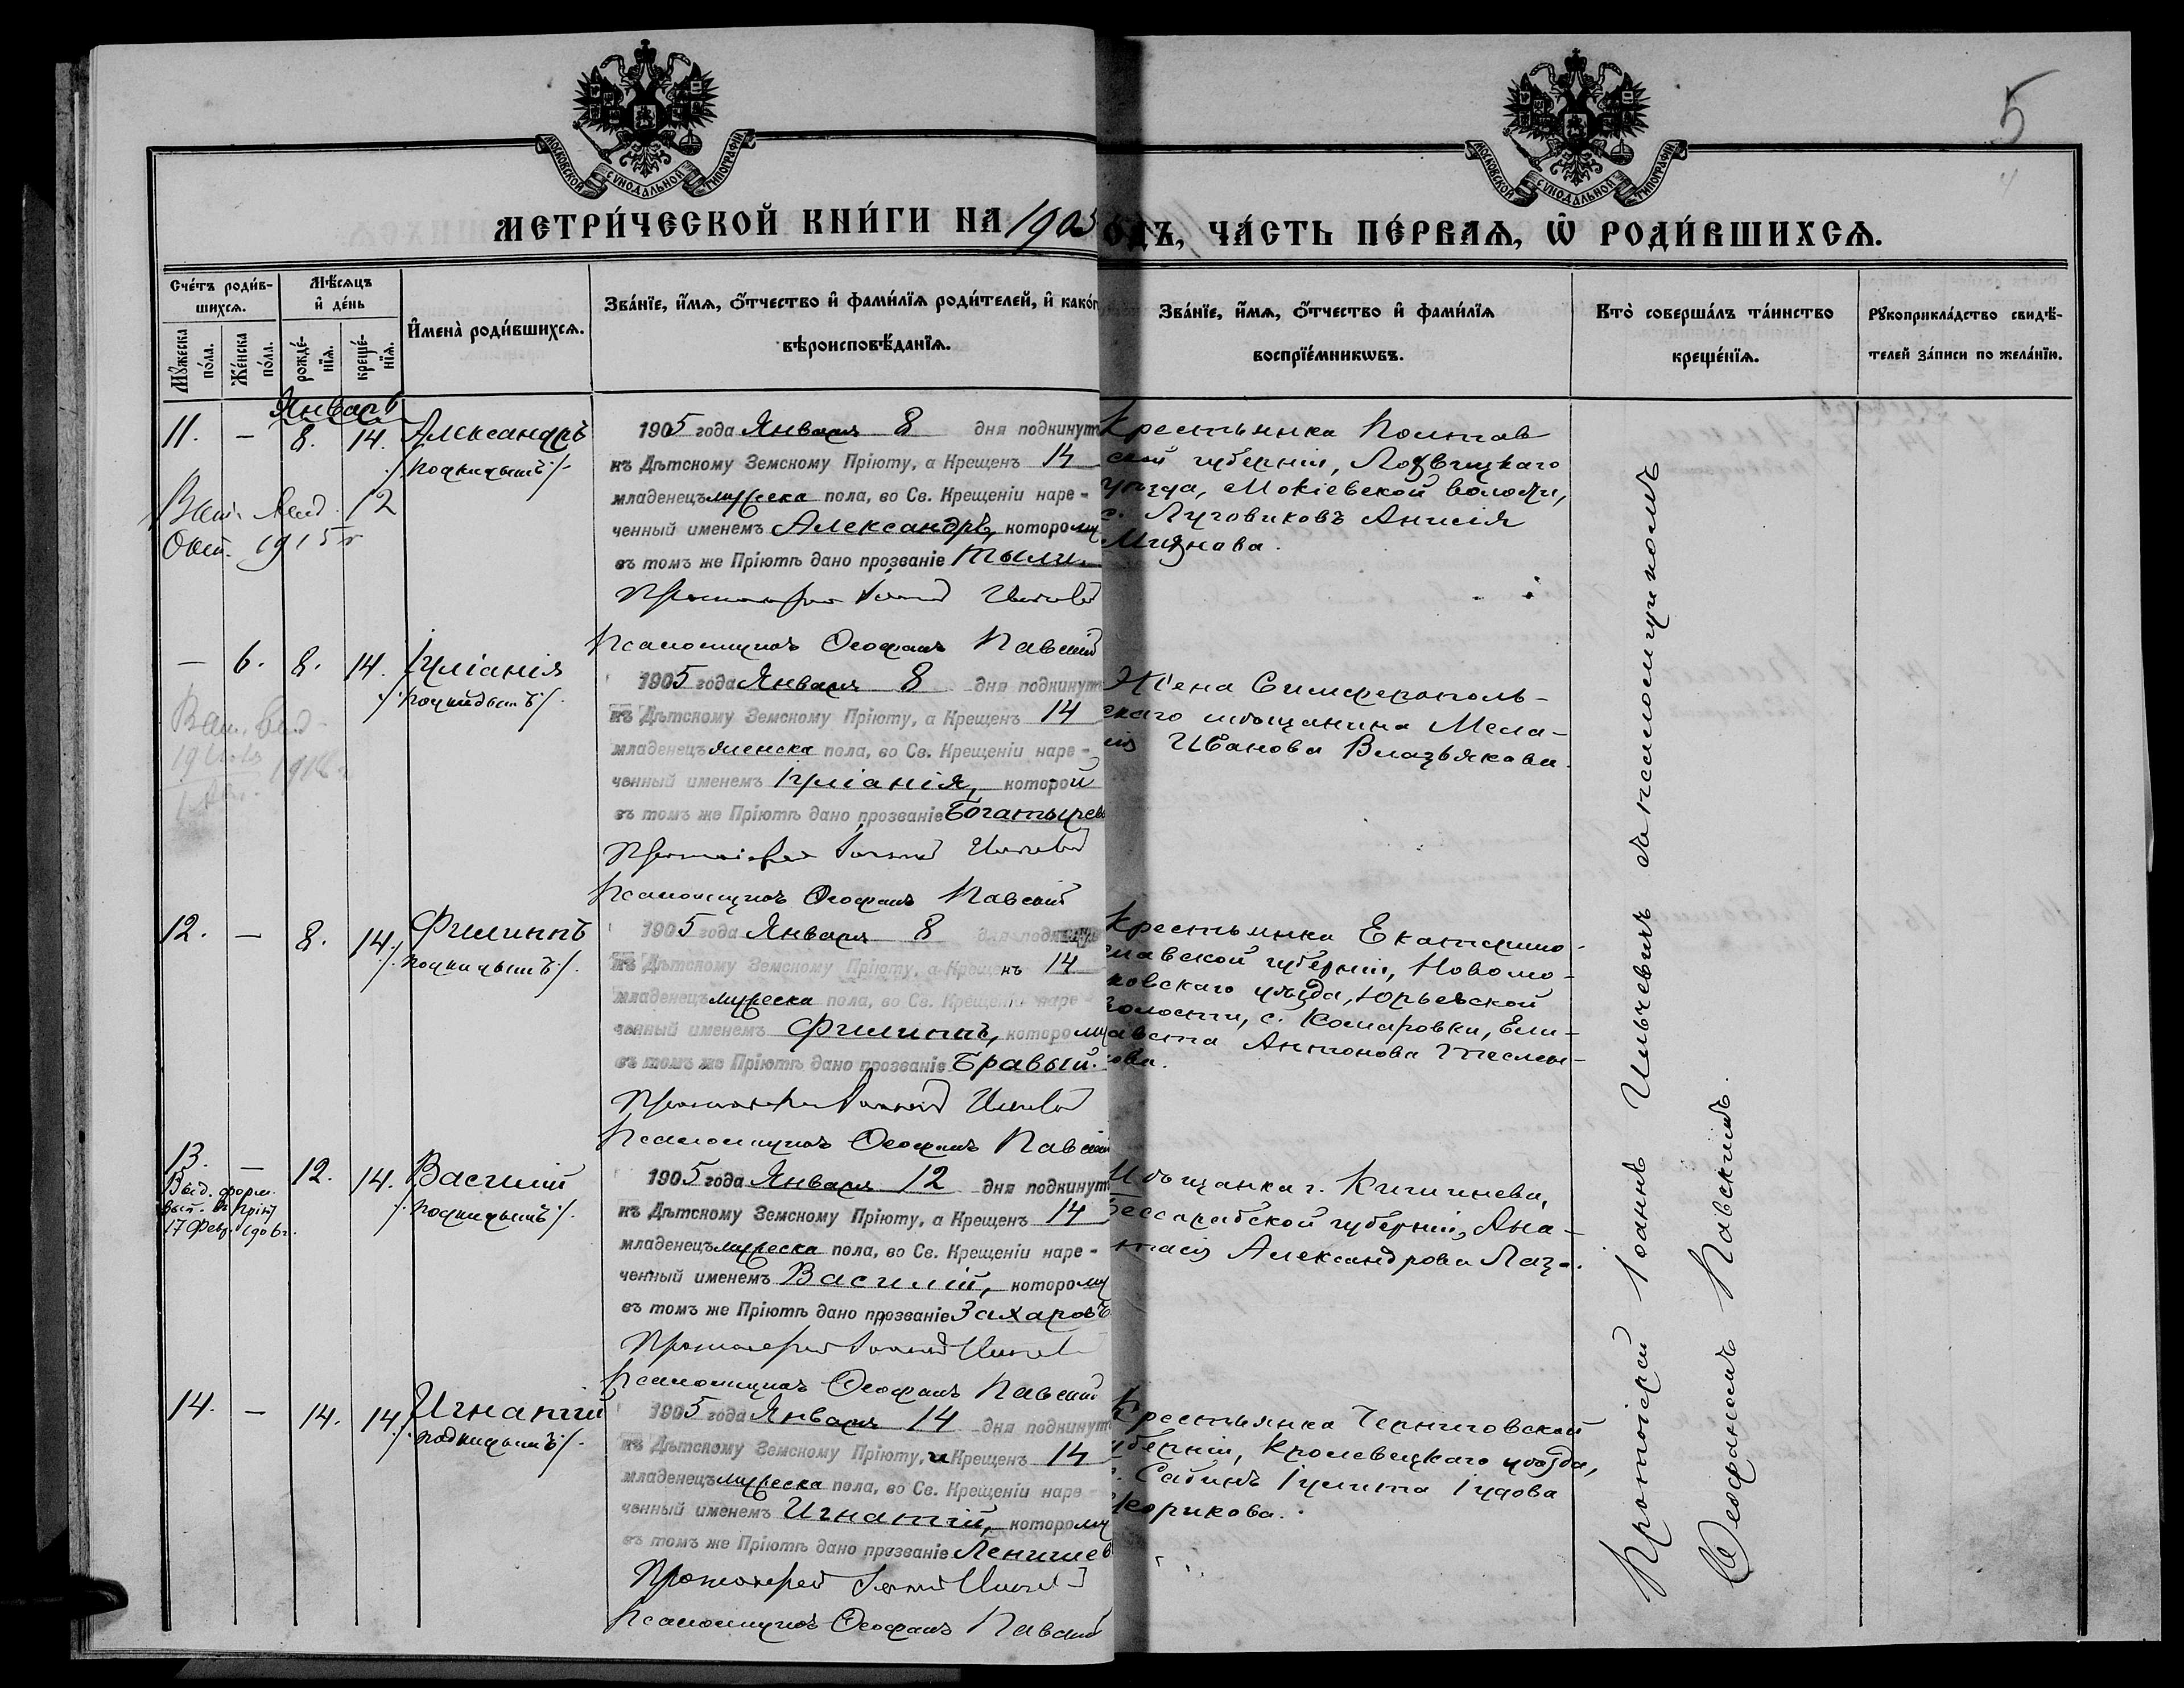 5
МОСКОВСКОЙ СѴНОДАЛЬНОЙ ТИПОГРАФІИ
МОСКОВСКОЙ СѴНОДАЛЬНОЙ ТИПОГРАФІИ
МЕТРИ́ЧЕСКОЙ КНИ́ГИ НА 1905
ОДЪ, ЧА́СТЬ ПЕ́РВАѦ, Ѡ҆ РОДИ́ВШИХСѦ.
Сче́тъ роди́в-
шихсѧ.
Мꙋ́жеска по́ла.
Же́нска по́ла.
Мѣ́сѧцъ и҆ де́нь
рожде́-нїѧ.
креще́-нїѧ.
И҆мена̀ роди́вшихсѧ.
Зва́нїе, и҆́мѧ, о҆́тчество и҆ фами́лїѧ роди́телей, и҆ како́г
вѣроисповѣ́данїѧ.
Зва́нїе, и҆́мѧ, о҆́тчество и҆ фами́лїѧ
воспрїе́мникѡвъ.
Кто̀ соверша́лъ та́инство
креще́нїѧ.
Рꙋкоприкла́дство свидѣ́-
телей за́писи по жела́нїю.
Январь
11. — 8. 14. Александръ
/подкидышъ/
12
Окт. 1915 г
1905 года Января 8 дня подкинут
къ Дѣтскому Земскому Пріюту, а Крещенъ 14
младенецъ мужеска пола, во Св. Крещеніи наре-
ченный именемъ Александръ, которому
въ томъ же Пріютѣ дано прозваніе Тыли
Протоіерей Іоаннъ
Псаломщикъ Ѳеофанъ Павскій
Крестьянка Полтав
ской губерніи, Лохвицкаго
уѣзда, Мокіевской волости,
с. Луговиковъ Анисія
— 6. 8. 14. Іуліанія
/подкидышъ/
1905 года Января 8 дня подкинут
къ Дѣтскому Земскому Пріюту, а Крещен 14
младенецъ женска пола, во Св. Крещеніи наре-
ченный именемъ Іуліанія, которой
въ томъ же Пріютѣ дано прозваніе Богатырев
Протоіерей Іоаннъ
Псаломщикъ Ѳеофанъ Павскій
Жена Симферополь-
скаго мѣщанина Мела-
нія Иванова Влазьякова.
12. — 8. 14. Филиппъ
/подкидышъ/
1905 года Января 8 дня подкину
къ Дѣтскому Земскому Пріюту, а Крещенъ 14
младенецъ мужеска пола, во Св. Крещеніи наре
ченный именемъ Филиппъ, которому
въ томъ же Пріютѣ дано прозваніе Бравый.
Протоіерей Іоаннъ
Псаломщикъ Ѳеофанъ Павскій
Крестьянка Екатерино-
славской губерніи, Новомо-
сковскаго уѣзда, Юрьевской
волости, с. Комаровки, Ели-
завета Антонова
13. — 12. 14. Василій
/подкидышъ/
Выд. форм.
вып. в Пріют
17 Февр. 1906 г.
1905 года Января 12 дня подкинут
къ Дѣтскому Земскому Пріюту, а Крещенъ 14
младенецъ мужеска пола, во Св. Крещеніи наре-
ченный именемъ Василій, которому
въ томъ же Пріютѣ дано прозваніе Захаровъ
Протоіерей Іоаннъ
Псаломщикъ Ѳеофанъ Павскій
Мѣщанка г. Кишинева,
Бессарабской губерніи, Ана-
стасія Александрова
14. — 14. 14. Игнатій
/подкидышъ/
1905 года Января 14 дня подкинут
къ Дѣтскому Земскому Пріюту, и Крещенъ 14
младенецъ мужеска пола, во Св. Крещеніи наре
ченный именемъ Игнатій, которому
въ томъ же Пріютѣ дано прозваніе Ленишев
Протоіерей Іоаннъ
Псаломщикъ Ѳеофанъ Павскій
Крестьянка Черниговской
губерніи, Кролевецкаго уѣзда,
Іулита Іудова
Протоіерей Іоаннъ Ильчевичъ съ псаломщикомъ
Ѳеофаномъ Павскимъ.